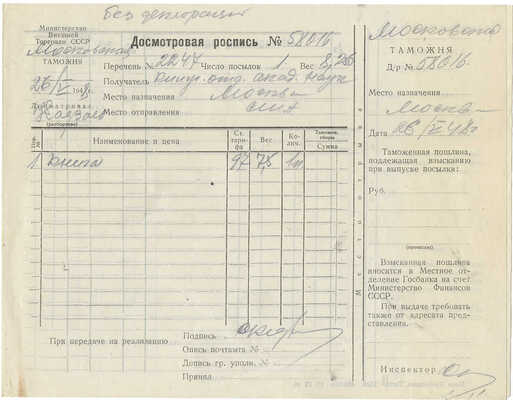 без декларации
Министерство
Внешней
Торговли СССР
Московская
ТАМОЖНЯ
26/V 1948 г.
Досматривал
(разборчиво)
Досмотровая роспись № 58016
Перечень № 2247 Число посылок 1 Вес 8,
Получатель отд. акад. Наук
Место назначения Москва
Место отправления США
Наименование и цена
Ст. тарифа
Вес
Колич.
Таможен. сборы
Сумма
1 книга 97 7,5 1 п
При передаче на реализацию
Подпись
Опись почтамта №
Допись гр. уполн. №
Принял
Московская
ТАМОЖНЯ
Д/р № 58016
Место назначения
Москва
Дата 26/V 48 г.
Таможенная пошлина,
подлежащая взысканию
при выпуске посылки:
Руб.
(прописью)
Взысканная пошлина
вносится в Местное от-
деление Госбанка на счет
Министерства Финансов
СССР.
При выдаче требовать
также от адресата пред-
ставления.
Инспектор